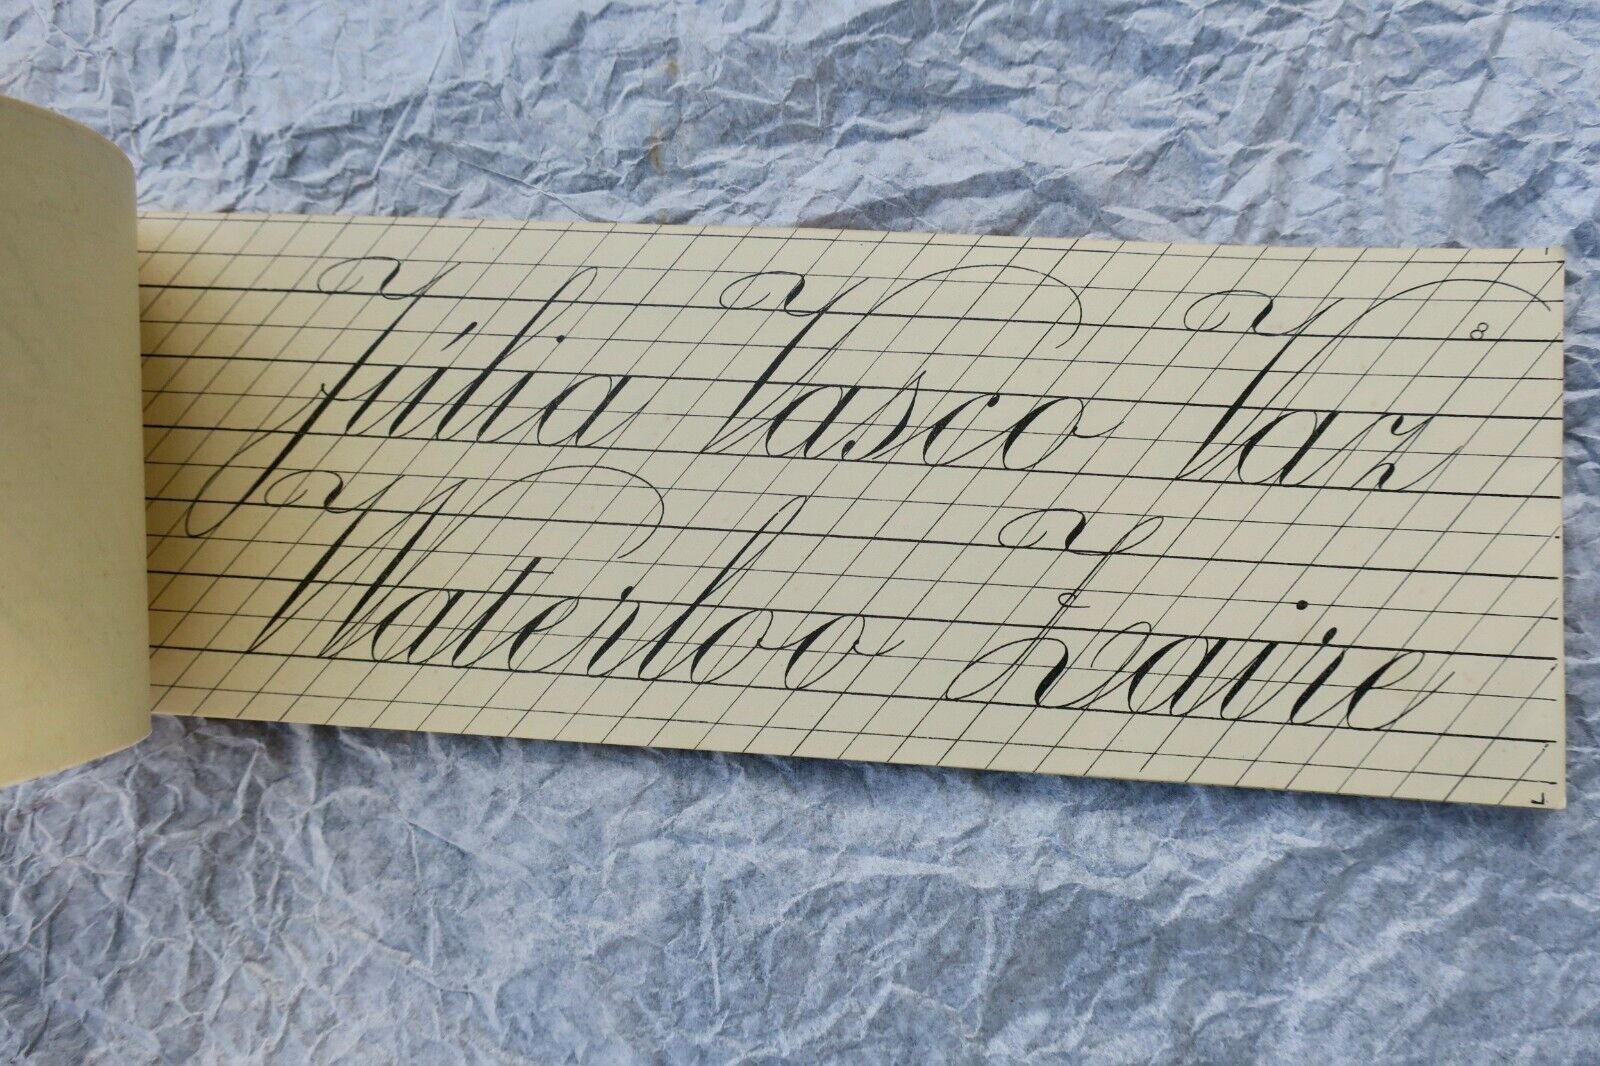 Júlia Vasco Vaz
8
Waterloo Zaire
L